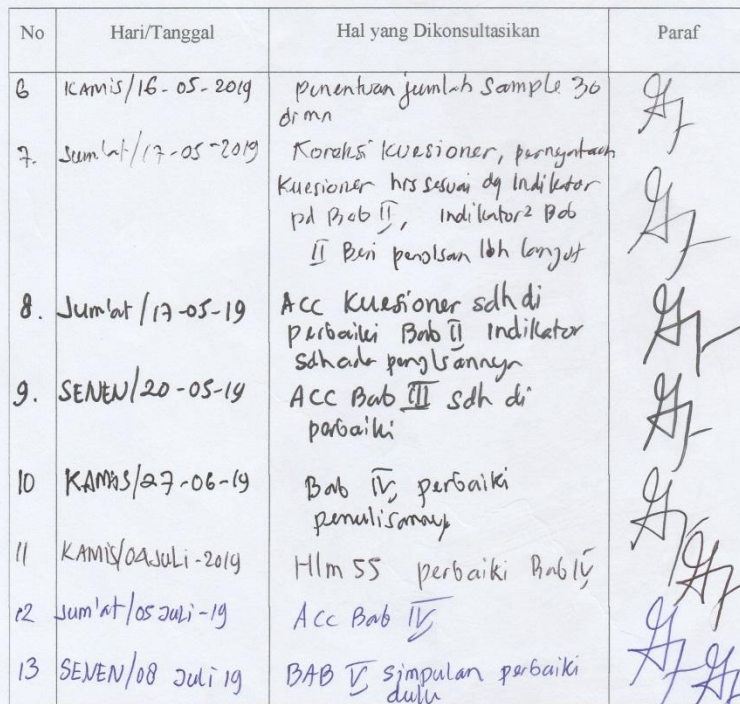 No Hari/Tanggal Hal yang Dikonsultasikan Paraf
6 KAMIS/16-05-2019 penentuan jumlah Sample 36
dr mn
7. Jum'at/17-05-2019 Koreksi Kuesioner, pernyataan
Kuesioner hrs sesuai dg Indikator
pd Bab II, indikator2 Bab
II Beri penjlsan lbh lanjut
8. Jum'at/17-05-19 ACC Kuesioner sdh di
perbaiki Bab II Indikator
sdh ada penjlsannya
9. SENEN/20-05-19 ACC Bab III sdh di
perbaiki
10 KAMIS/27-06-19 Bab IV, perbaiki
penulisannya
11 KAMIS/04 JULI-2019 Hlm 55 perbaiki Bab IV
12 Jum'at/05 Juli-19 Acc Bab IV
13 SENEN/08 Juli 19 BAB V simpulan perbaiki
dulu